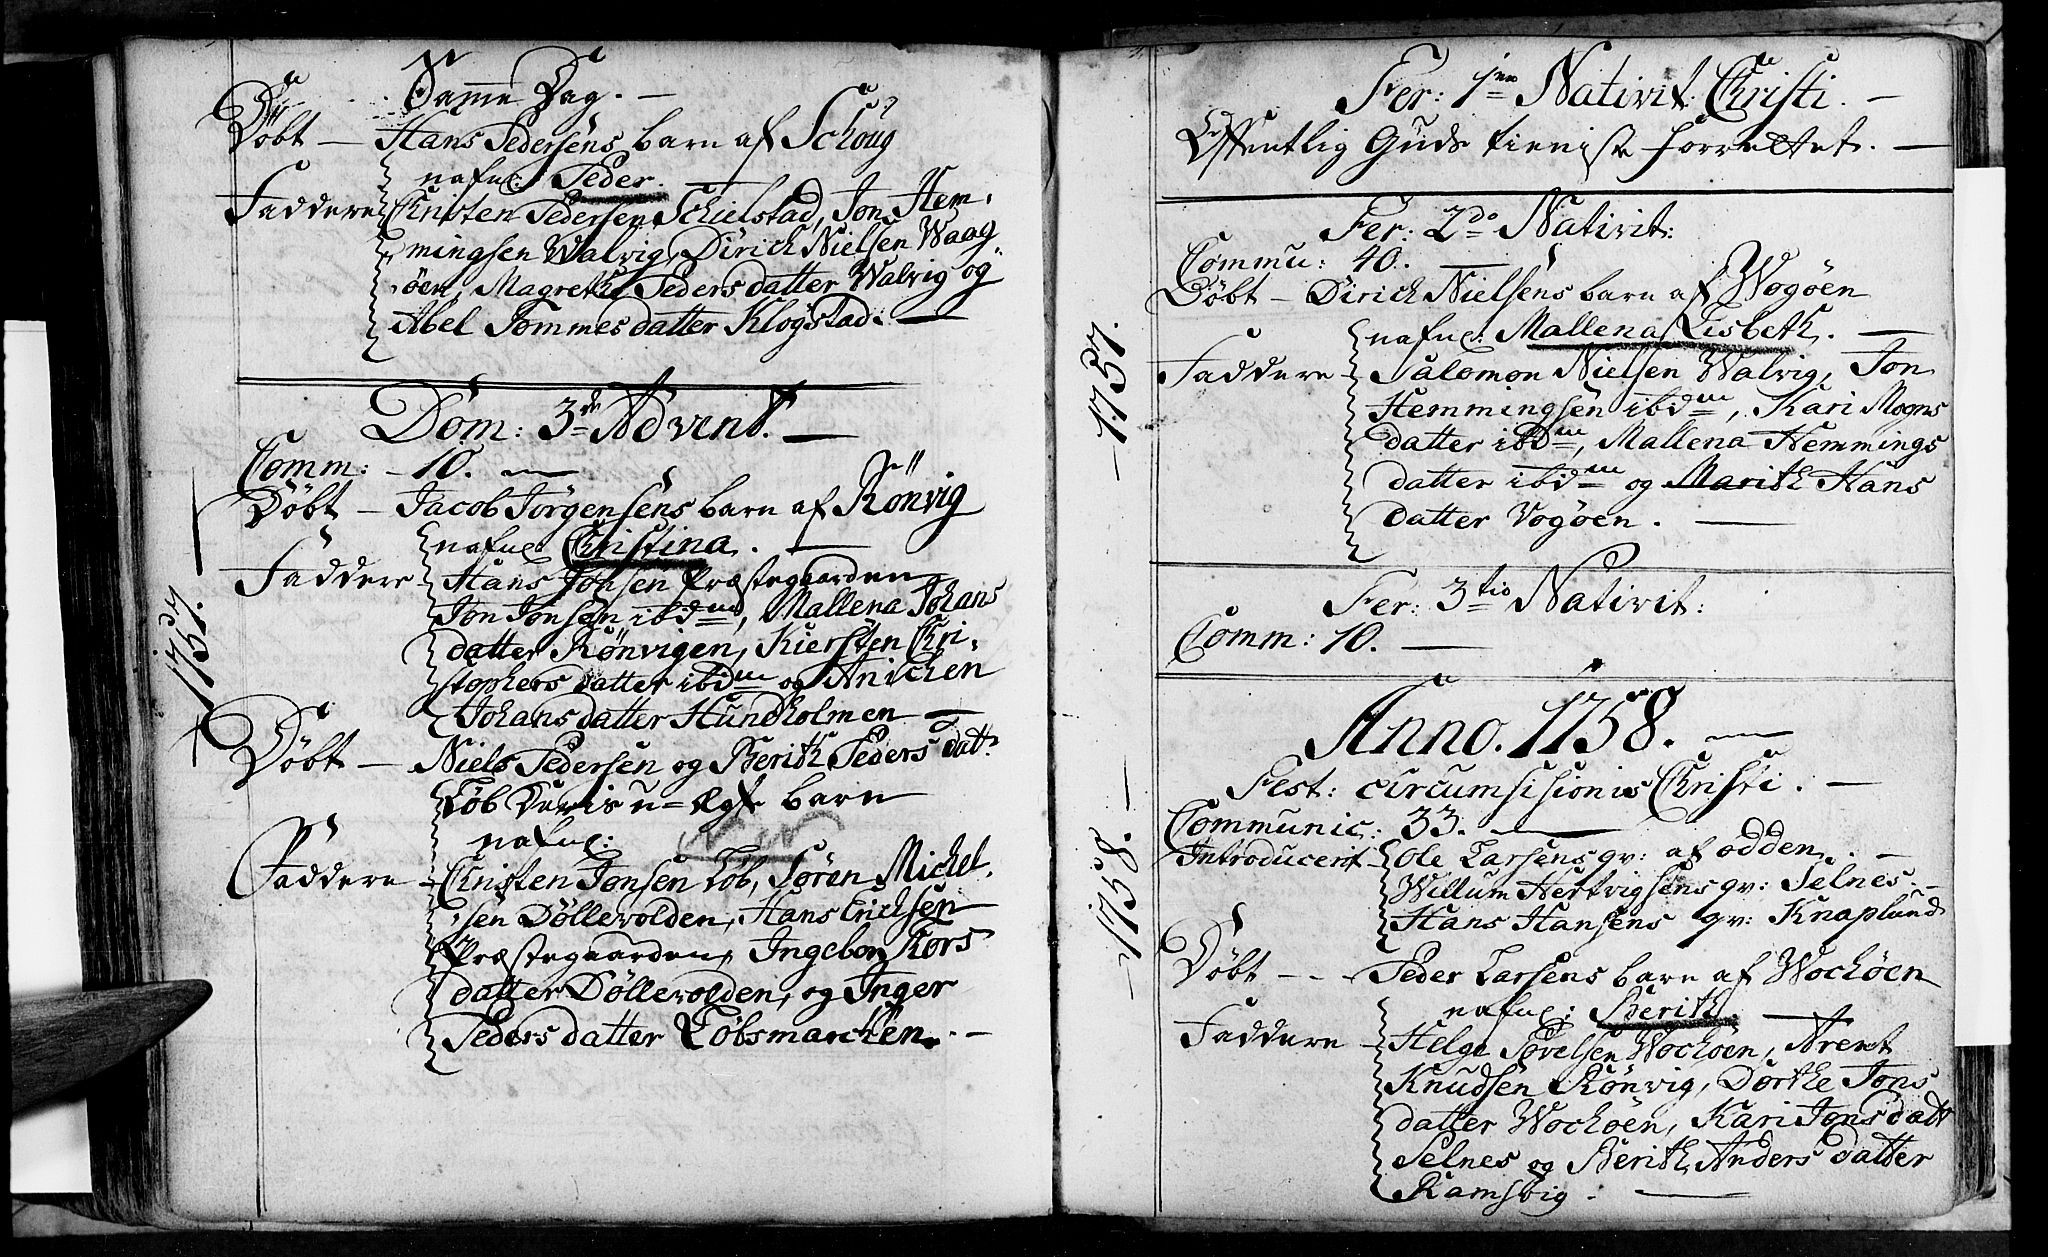 Samme Dag. —
Döbt — Hans Pedersens barn af Schoug
nafnl: Peder. —
Faddere Christen Pedersen Schielstad, Jon Hem-
mingsen Walvig, Dirich Nielsen Waag
öen, Magrethe Pedersdatter Walvig og
Abel Tommesdatter Klogstad. —
Dom: 3de Advent. —
Comm: — 10. —
Döbt — Jacob Jörgensens barn af Rönvig
nafnl: Christina. —
Faddere — Hans Johsen Præstegaarden
Jon Jonsen ibdm, Mallena Johans
datter Rönvigen, Kiersten Chri-
stophers datter ibdm og Anichen
Johans datter Hundholmen —
Döbt — Niels Pedersen og Berith Peders datt:
Löb u= Ægt barn
nafnl:
Faddere — Christen Jonsen Löb, Sören Michel-
sen Döllevolden, Hans Erichsen
Præstegaarden, Ingebor Kors
datter Döllevolden, og Inger
Peders datter Löbsmarchen. —
— 1757. —
Fer: 1me Nativit: Christi. —
Offentlig Guds tieniste forrettet. —
Fer: 2do Nativit:
Commu: 40. —
Döbt — Dirich Nielsens barn af Wogöen
nafnl: Mallena Lisbeth. —
Faddere — Salomon Nielsen Walvig, Jon
Hemmingsen ibdm, Kari Mogns
datter ibdm, Mallena Hemmings
datter ibdm og Marith Hans
datter Vogöen. —
Fer: 3tio Nativit:
Comm: 10. —
Anno. 1758. —
Fest: circumsisionis Christi. —
Communic: 33. —
Introducert — Ole Larsens qv: af Odden. —
Willum Hertvigsens qv: Selnes. —
Hans Hansens qv: Knaplund
Döbt — — Peder Larsens barn af Wochöen
nafnl: Berith. —
Faddere — Helge Sörelsen Wochöen, Arent
Knudsen Rönvig, Dorthe Jons
datter Wochöen, Kari Jonsdatt
Selnes og Berith Anders datter
Ramsvig. —
— 1757.
— 1758. —